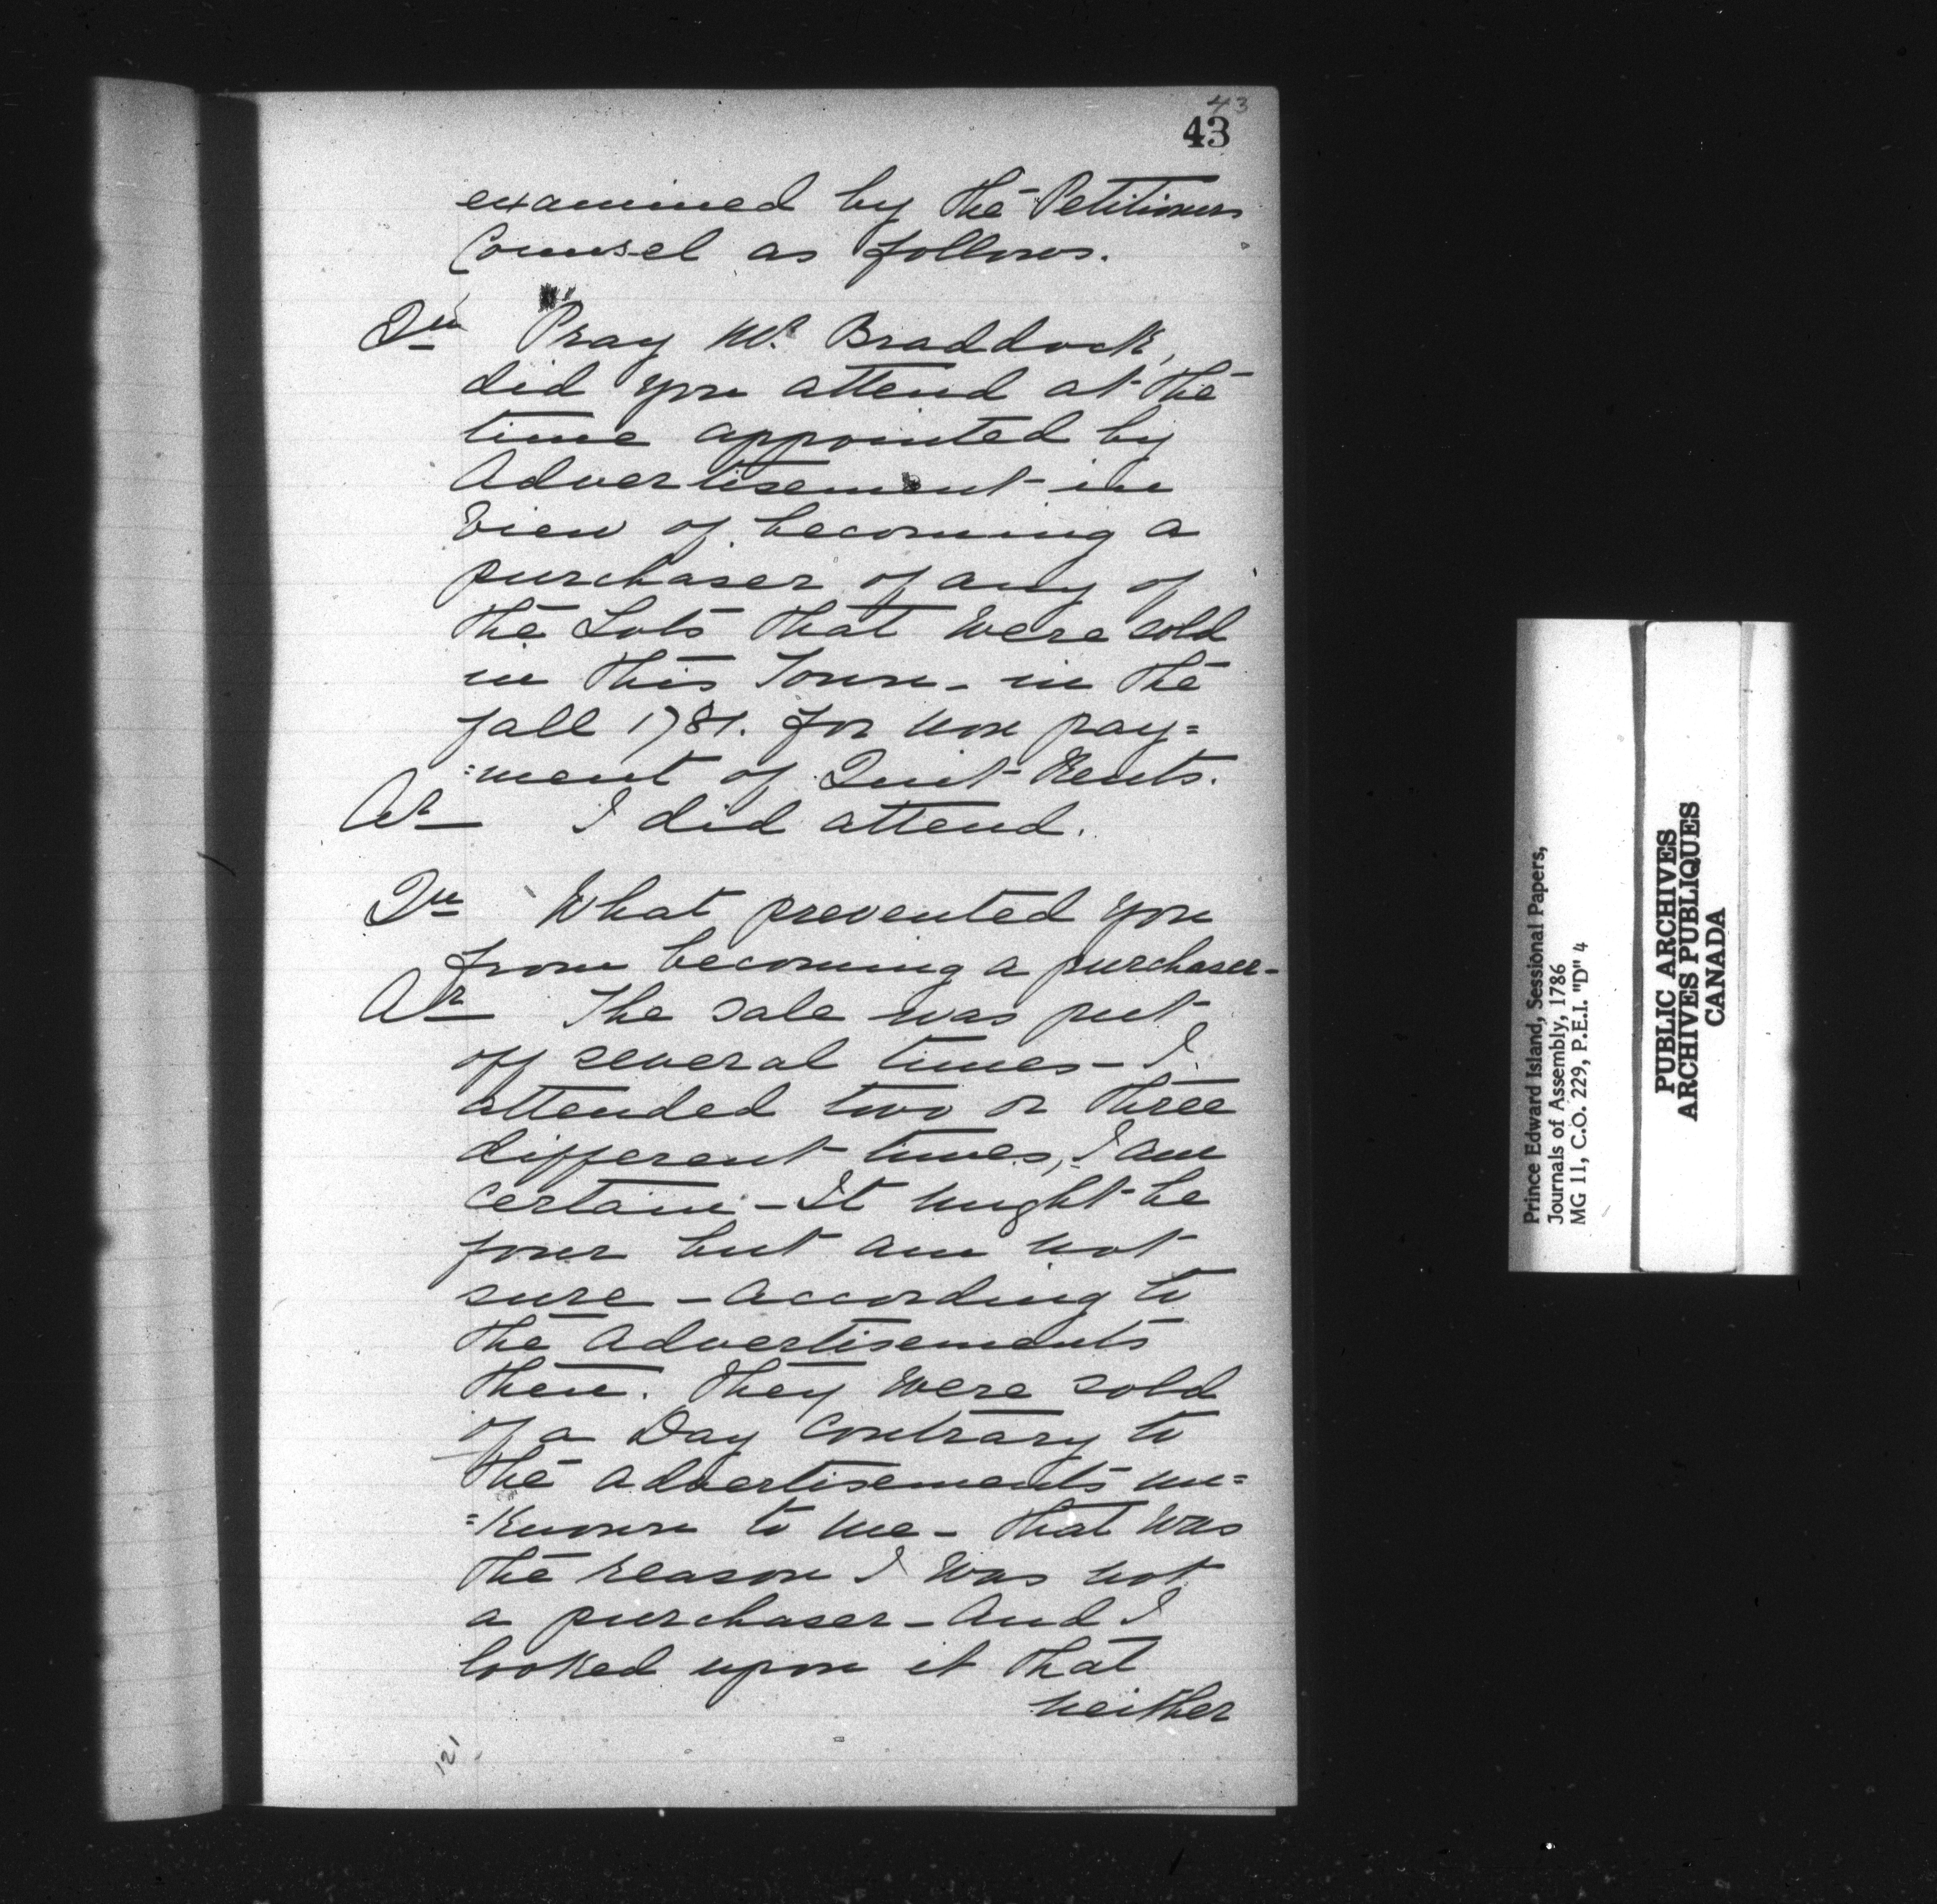 43
43
examined by the Petitioners
Counsel as follows.
Qu Pray Mr. Braddock,
did you attend at the
time appointed by
Advertisement in
view of becoming a
purchaser of any of
the Lots that were sold
in this Town - in the
fall 1781. for non pay=
=ment of Quit Rents.
Ar I did attend.
Qu What prevented you
from becoming a purchaser-
Ar The sale was put
off several times - I
attended two or three
different times, I am
certain - It might be
four but am not
sure - According to
the Advertisements
then. They were sold
of a Day Contrary to
the Advertisements un=
=known to me - that was
the reason I was not
a purchaser - And I
looked upon it that
neither
121
Prince Edward Island, Sessional Papers,
Journals of Assembly, 1786
MG 11, C.O. 229, P.E.I. "D" 4
PUBLIC ARCHIVES
ARCHIVES PUBLIQUES
CANADA